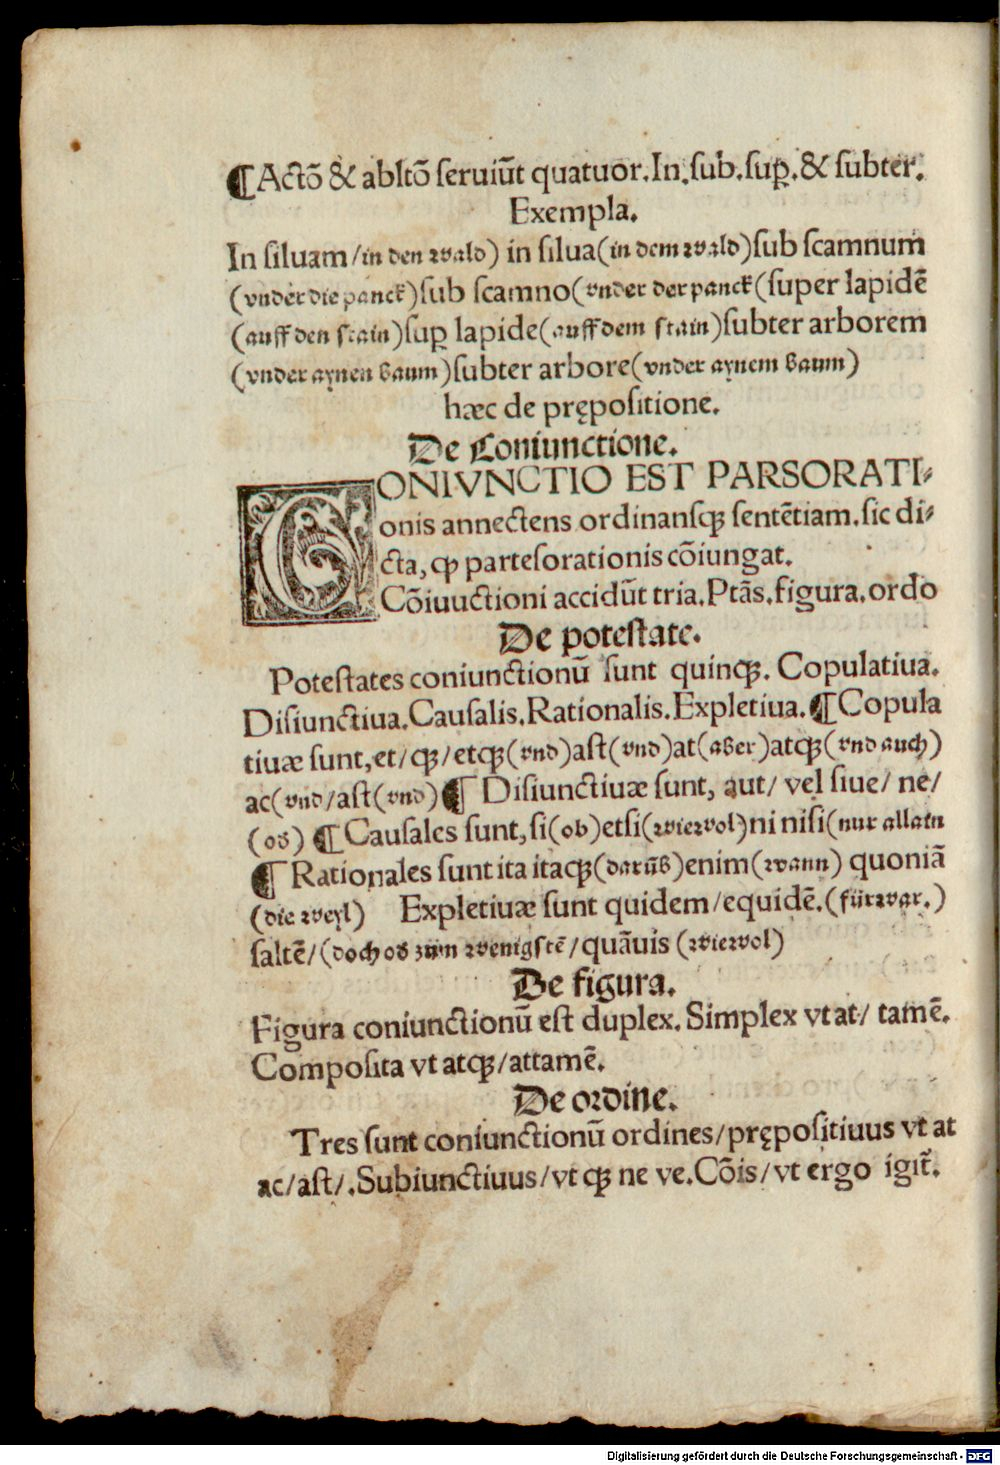 ¶Actō & abltō ſeruiūt quatuor.In.ſub.ſuꝑ.& ſubter.
Exempla.
In ſiluam/in den wald) in ſilua(in dem wald)ſub ſcamnum
(vnder die panck)ſub ſcamno(vnder der panck(ſuper lapidē
(auff den ſtain)ſuꝑ lapide(auff dem ſtain)ſubter arborem
(vnder aynen baum)ſubter arbore(vnder aynem baum)
hæc de prępoſitione.
De Coniunctione.
CONIVNCTIO EST PARSORATI⸗
onis annectens ordinanſqꝫ ſentētiam.ſic di⸗
cta, ꝙ parteſorationis cōiungat.
Cōiuuctioni accidūt tria.Ptās.figura.ordo
De poteſtate.
Poteſtates coniunctionū ſunt quinqꝫ. Copulatiua.
Diſiunctiua.Cauſalis.Rationalis.Expletiua.¶Copula
tiuæ ſunt,et/qꝫ/etqꝫ(vnd)aſt(vnd)at(aber)atqꝫ(vnd auch)
ac(vnd/aſt(vnd)¶ Diſiunctiuæ ſunt, aut/ vel ſiue/ ne/
(od) ¶Cauſales ſunt,ſi(ob)etſi(wiewol)ni niſi(nur allain
¶Rationales ſunt ita itaqꝫ(darūb)enim(wann) quoniā
(die weyl) Expletiuæ ſunt quidem/equidē.(fürwar.)
ſaltē/(doch od zum wenigſtē/quāuis (wiewol)
De figura.
Figura coniunctionū eſt duplex.Simplex vt at/ tamē.
Compoſita vt atqꝫ/attamē.
De ordine.
Tres ſunt coniunctionū ordines/prępoſitiuus vt at
ac/aſt/.Subiunctiuus/vt qꝫ ne ve.Cōis/vt ergo igit̃.
Digitalisierung gefördert durch die Deutsche Forschungsgemeinschaft - DFG